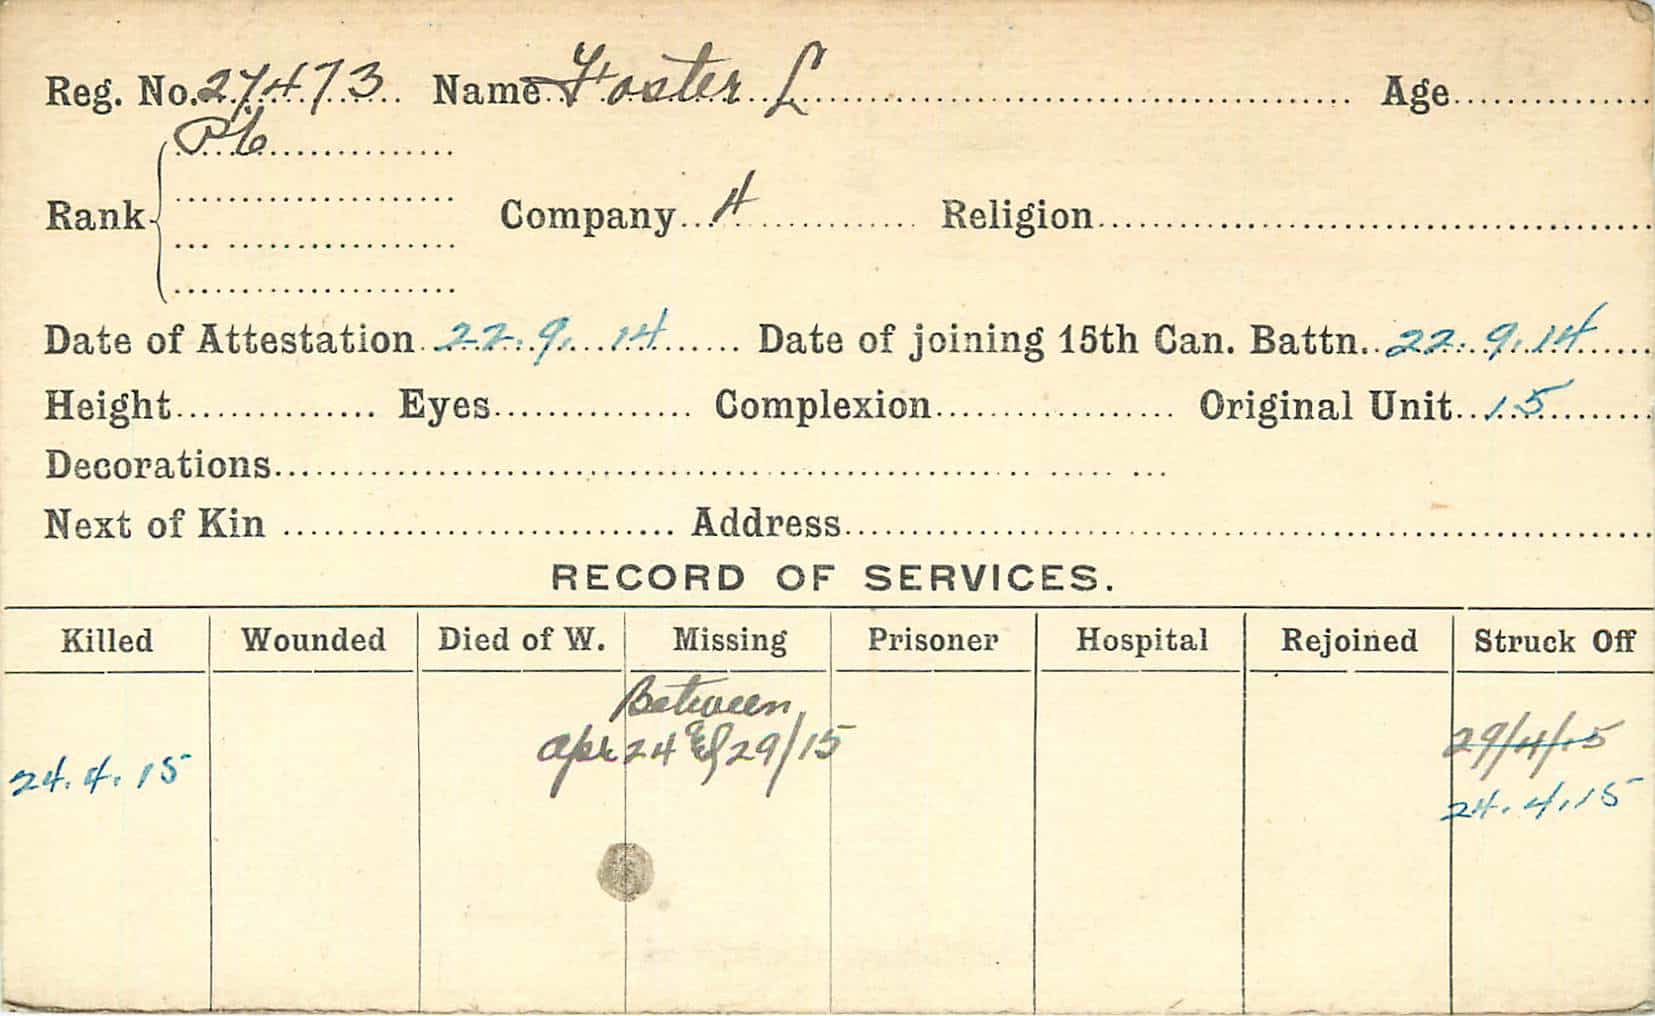 Reg. No. 27473 Name Foster L Age
Pte
Rank Company 4 Religion
Date of Attestation 22.9.14 Date of joining 15th Can. Battn. 22.9.14
Height Eyes Complexion Original Unit 15
Decorations
Next of Kin Address
RECORD OF SERVICES.
Killed Wounded Died of W. Missing Prisoner Hospital Rejoined Struck Off
Between
24.4.15 Apr 24 & 29/15 29/4/15
24.4.15